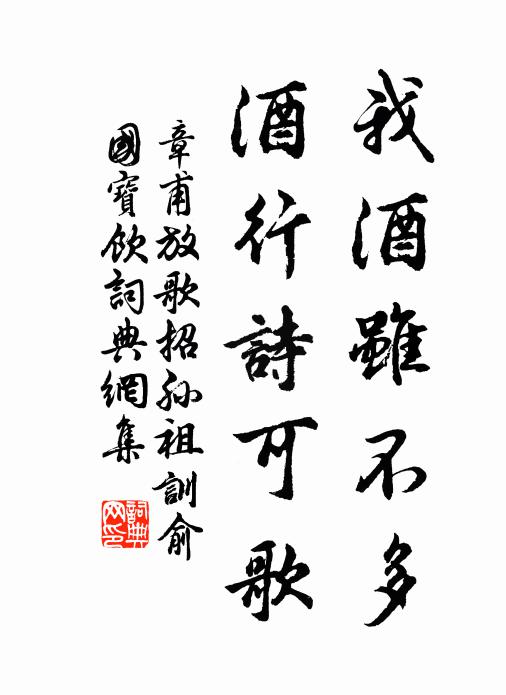 我酒雖不多
酒行詩可歌
章甫放歌招孙祖訓俞
國寶飲詞典網集
詞典
网印